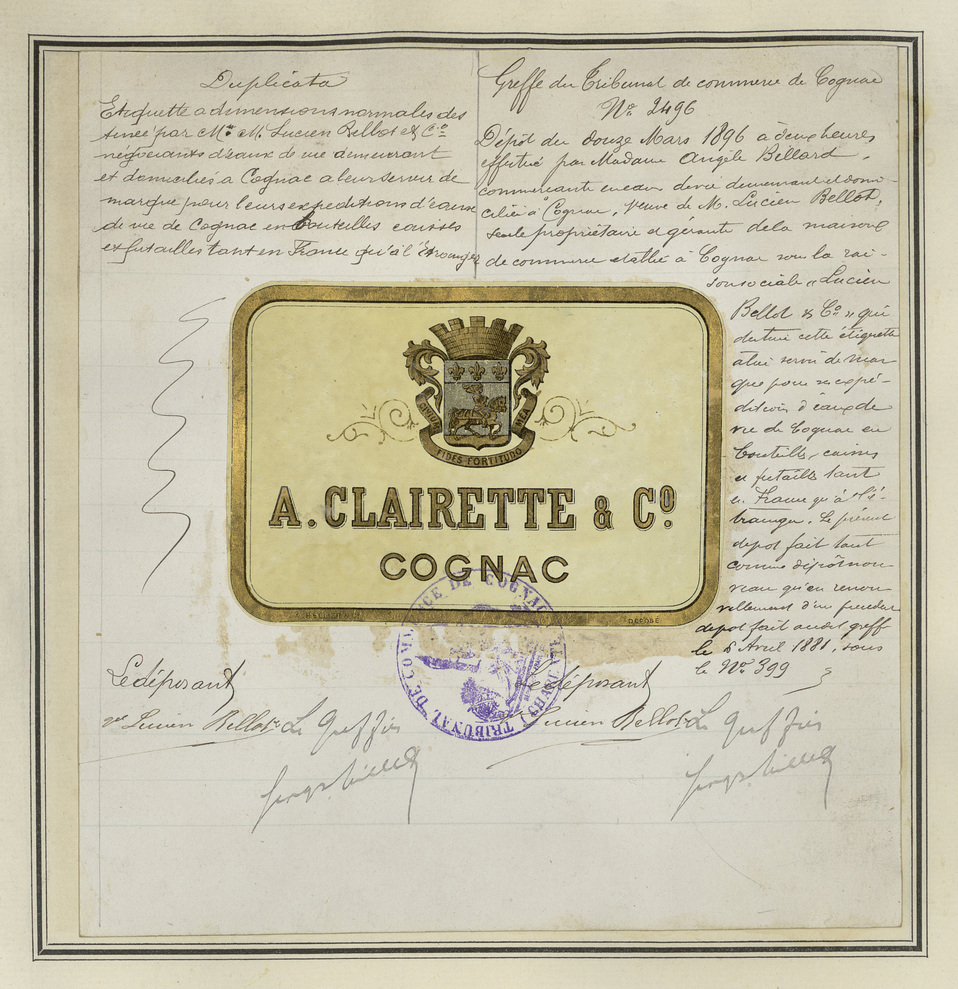 Duplicata
Etiquette a dimensions normales des
sinée par Mr. M. Lucien Bellot & Cie
négociants d'eaux de vie demeurant
et domiciliés a Cognac a leur servir de
marque pour leurs expeditions d'eaux
de vie de Cognac en bouteilles caisses
et futailles tant en France qu'à l'étranger
Greffe du Tribunal de commerce de Cognac
No. 2496
Dépôt du douze Mars 1896 à deux heures
effectué par Madame Angèle Bellard,
commerçante en eaux de vie demeurant et domi-
ciliée à Cognac, veuve de M. Lucien Bellot,
seule propriétaire et gérante de la maison
de commerce établie à Cognac sous la rai-
son sociale « Lucien
Bellot & Co » qui
destine cette étiquette
à lui servir de mar
que pour ses expé-
ditions d'eaux de
vie de Cognac en
bouteilles, caisses
et futailles tant
en France qu'à l'é-
tranger. Le présent
depot fait tant
comme dépôt nou-
veau qu'en renou-
vellement d'un précédent
depot fait audit greffe
le 6 Avril 1881, sous
le No. 399
CIVIUM
MEA
FIDES·FORTITUDO
A. CLAIRETTE & Co.
COGNAC
DÉPOSÉ
TRIBUNAL DE COMMERCE DE COGNAC (CHARENTE)
Le déposant
Le déposant
ve Lucien Bellot
Le Greffier
Lucien Bellot
Le Greffier